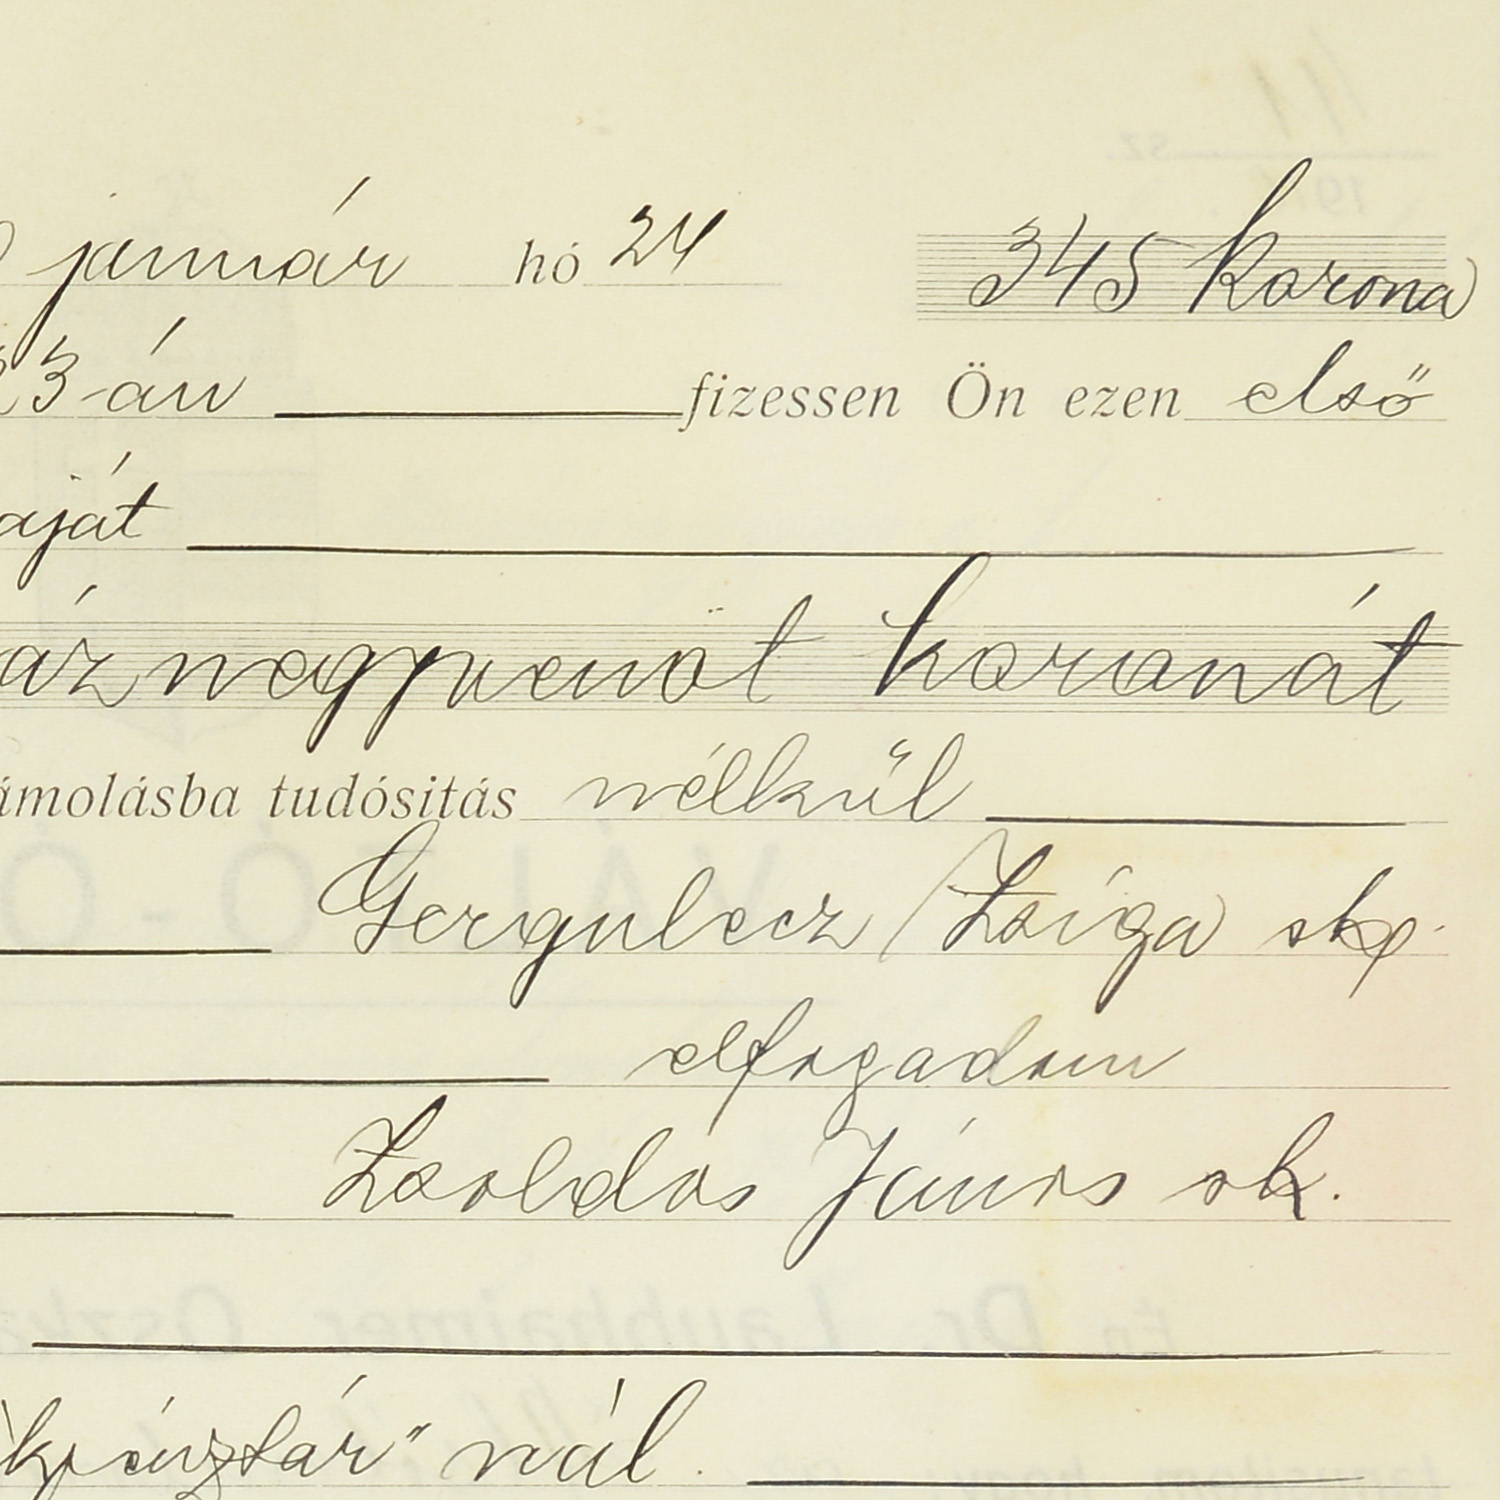 január hó 24 345 korona
23-án fizessen Ön ezen első
aját
áz negyvenöt koronát
ámolásba tudósitás nélkül
Gergulecz Zsiga skp.
elfogadom
Zsoldos János sk.
kpénztár" nál.